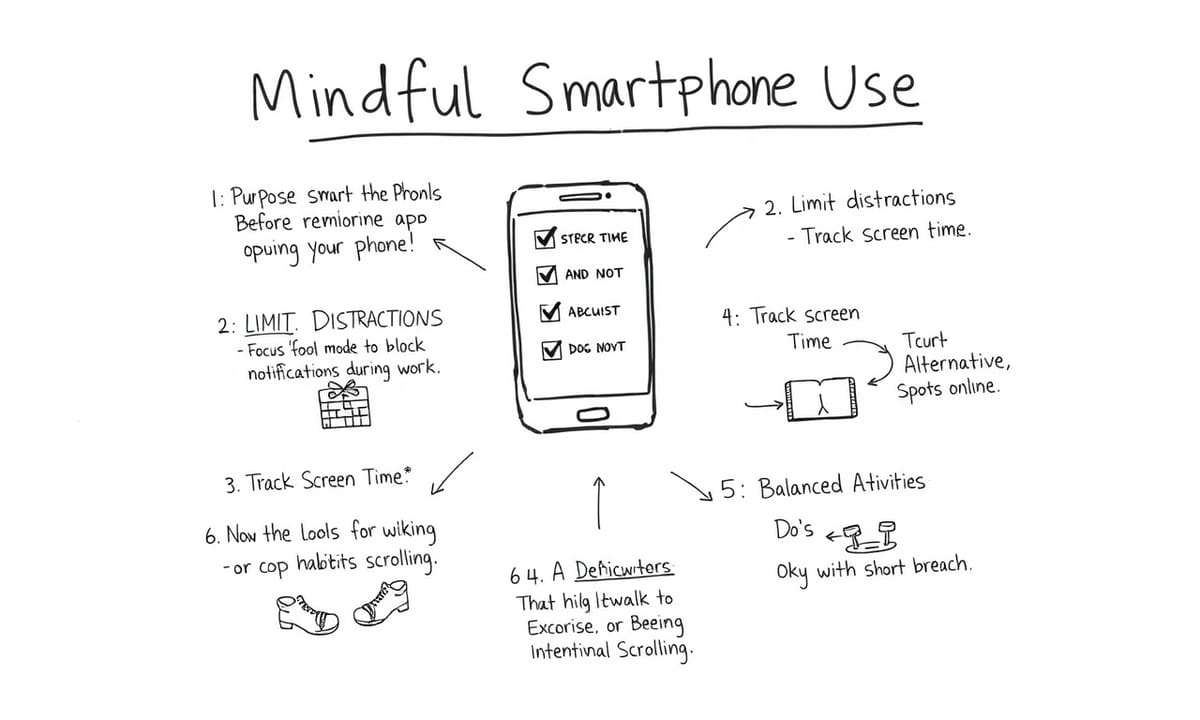 Mindful Smartphone Use
1: Purpose smart the Phonls
Before remiorine app
opuing your phone!
2: LIMIT. DISTRACTIONS
- Focus 'fool mode to block
notifications during work.
3. Track Screen Time:*
6. Now the Lools for wiking
-or cop habitits scrolling.
STPCR TIME
AND NOT
ABCUIST
DOG NOVT
64. A Dehicwters:
That hilg Itwalk to
Excorise, or Beeing
Intentinal Scrolling.
2. Limit distractions
- Track screen time.
4: Track screen
Time
Tcurt
Alternative,
Spots online.
5: Balanced Ativities
Do's
Oky with short breach.